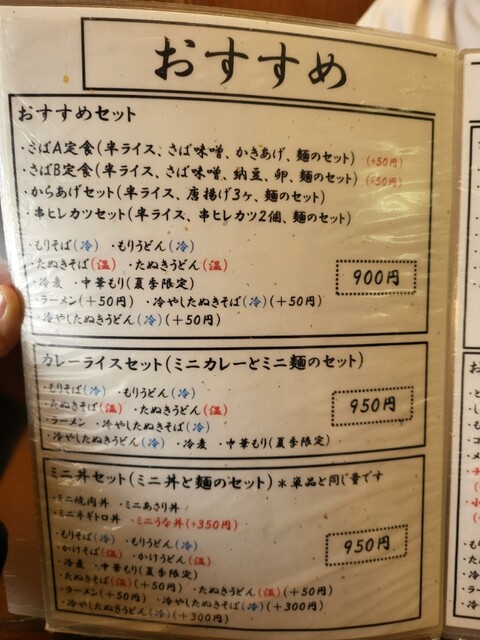 おすすめ
おすすめセット
・さばA定食(半ライス、さば味噌、かきあげ、麺のセット)(+50円)
・さばB定食(半ライス、さば味噌、納豆、卵、麺のセット)(+50円)
・からあげセット(半ライス、唐揚げ3ヶ、麺のセット)
・串ヒレカツセット(半ライス、串ヒレカツ2個、麺のセット)
・もりそば(冷) ・もりうどん(冷)
・たぬきそば(温) ・たぬきうどん(温)
・冷麦 ・中華もり(夏季限定)
・ラーメン(+50円) ・冷やしたぬきそば(冷)(+50円)
・冷やしたぬきうどん(冷)(+50円)
900円
カレーライスセット(ミニカレーとミニ麺のセット)
・もりそば(冷) ・もりうどん(冷)
・たぬきそば(温) ・たぬきうどん(温)
・ラーメン ・冷やしたぬきそば(冷)
・冷やしたぬきうどん(冷) ・冷麦 ・中華もり(夏季限定)
950円
ミニ丼セット(ミニ丼と麺のセット)*単品と同じ量です
・ミニ焼肉丼 ・ミニあさり丼
・ミニネギトロ丼 ・ミニうな丼(+350円)
・もりそば(冷) ・もりうどん(冷)
・かけそば(温) ・かけうどん(温)
・冷麦 ・中華もり(夏季限定)
・たぬきそば(温)(+50円) ・たぬきうどん(温)(+50円)
・ラーメン(+50円) ・冷やしたぬきそば(冷)(+300円)
・冷やしたぬきうどん(冷)(+300円)
950円